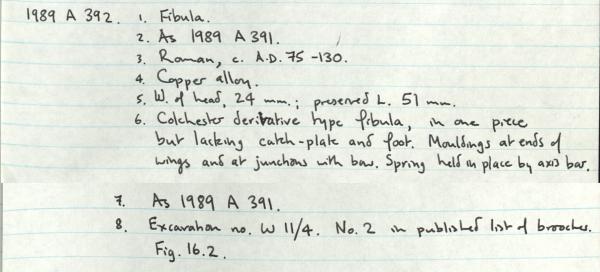 1989 A 392. 1. Fibula.
2. As 1989 A 391.
3. Roman, c. A.D. 75 - 130.
4. Copper alloy.
5. W. of head, 24 mm.; preserved L. 51 mm.
6. Colchester derivative type fibula, in one piece
but lacking catch-plate and foot. Mouldings at ends of
wings and at junctions with bow. Spring held in place by axis bar.
7. As 1989 A 391.
8. Excavation no. W 11/4. No. 2 in published list of brooches.
Fig. 16.2.